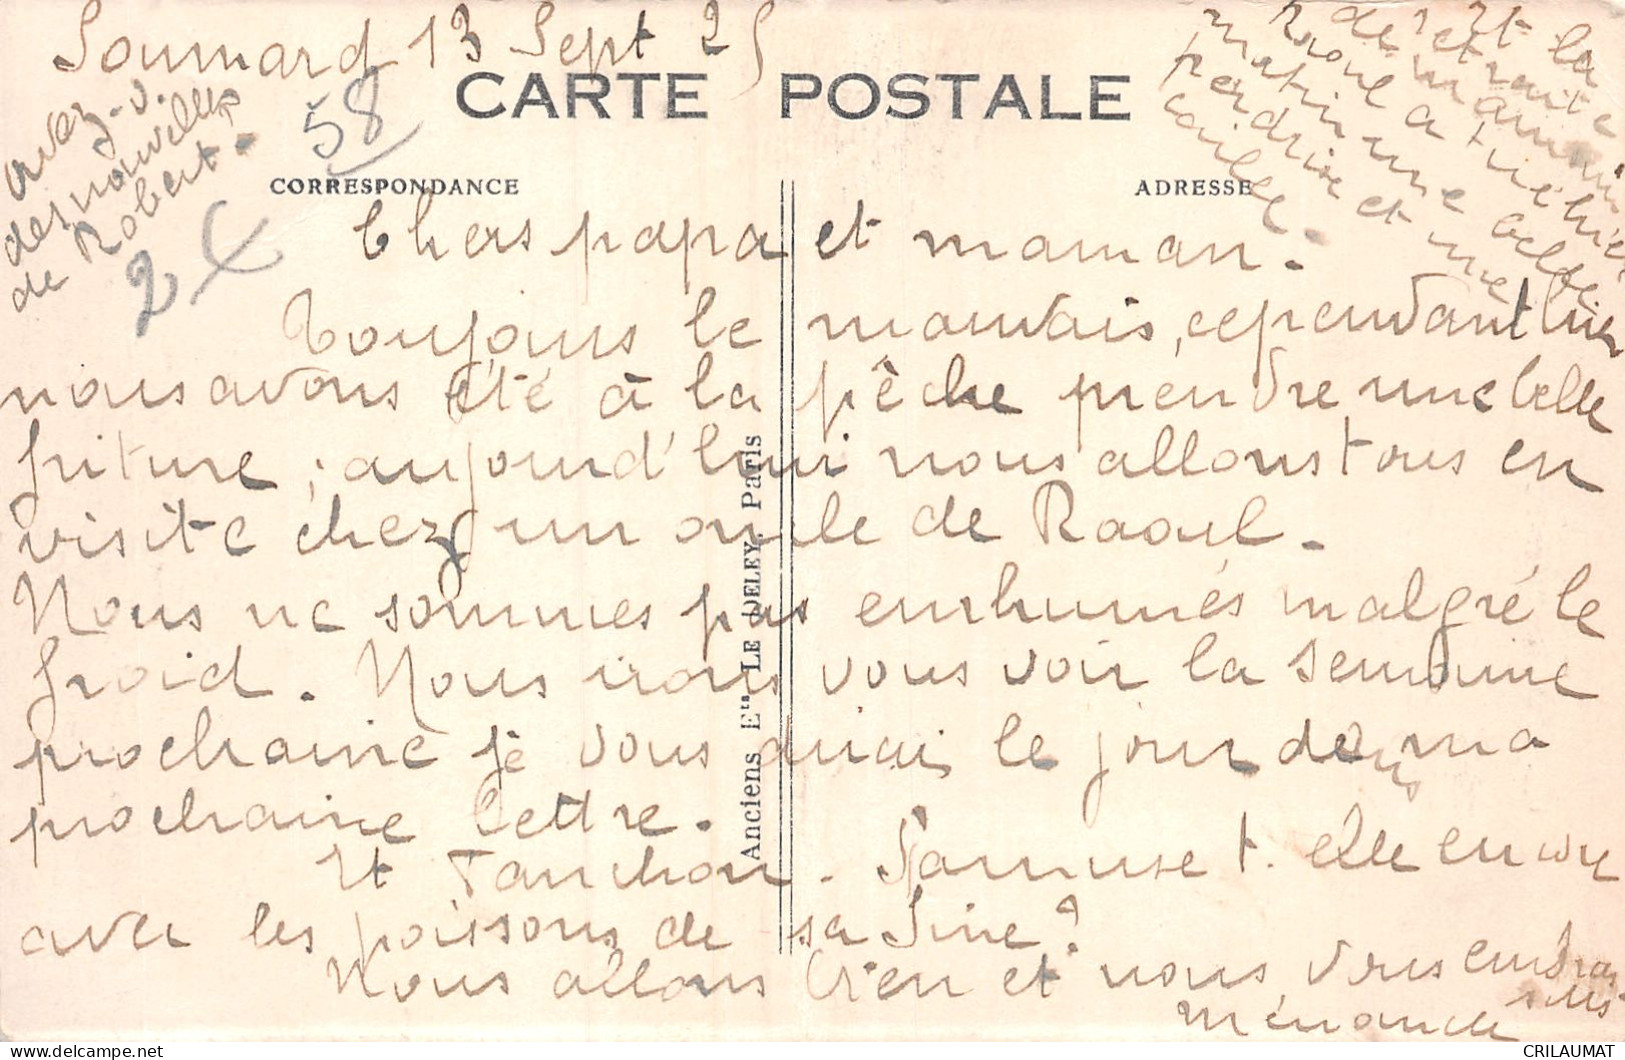 Soumard 13 Sept 25
Avez-v.
des nouvelles
de Robert.
58
2
Et la
retraite
de maman
Raoul a tué hier
matin une belle
perdrix et une
caille.
CARTE POSTALE
CORRESPONDANCE
ADRESSE
Chers papa et maman.
Toujours le mauvais, cependant hier
nous avons été à la pêche prendre une belle
friture ; aujourd'hui nous allons tous en
visite chez un oncle de Raoul.
Nous ne sommes pas enrhumés malgré le
froid. Nous irons vous voir la semaine
prochaine je vous dirai le jour dans ma
prochaine lettre.
Et Fanchon. S'amuse t. elle encore
avec les poissons de sa Line?
Nous allons bien et nous vous embras
sons
Anciens Ets LE DELEY, Paris
CRILAUMAT